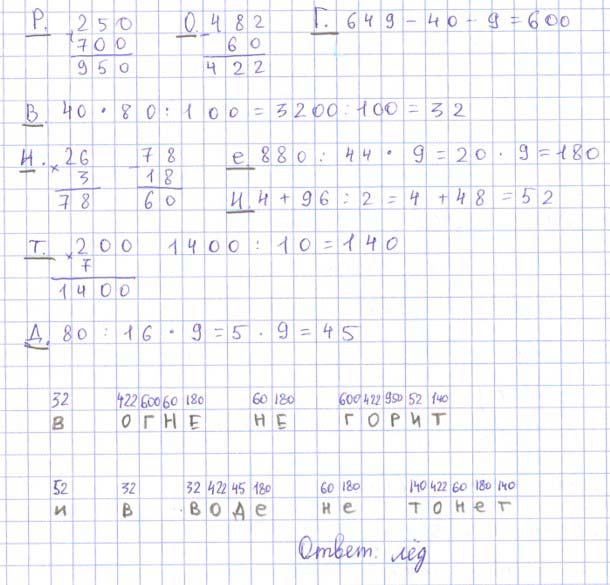 Р. + 250 О. - 482 Г. 649 - 40 - 9 = 600
700 60
950 422
В. 40 · 80 : 100 = 3200 : 100 = 32
Н. × 26 - 78 е. 880 : 44 · 9 = 20 · 9 = 180
3 18
78 60 И. 4 + 96 : 2 = 4 + 48 = 52
Т. × 200 1400 : 10 = 140
7
1400
Д. 80 : 16 · 9 = 5 · 9 = 45
32 422 600 60 180 60 180 600 422 950 52 140
В О Г Н Е Н Е Г О Р И Т
52 32 32 422 45 180 60 180 140 422 60 180 140
и В В О Д е н е т о н е т
Ответ: лёд